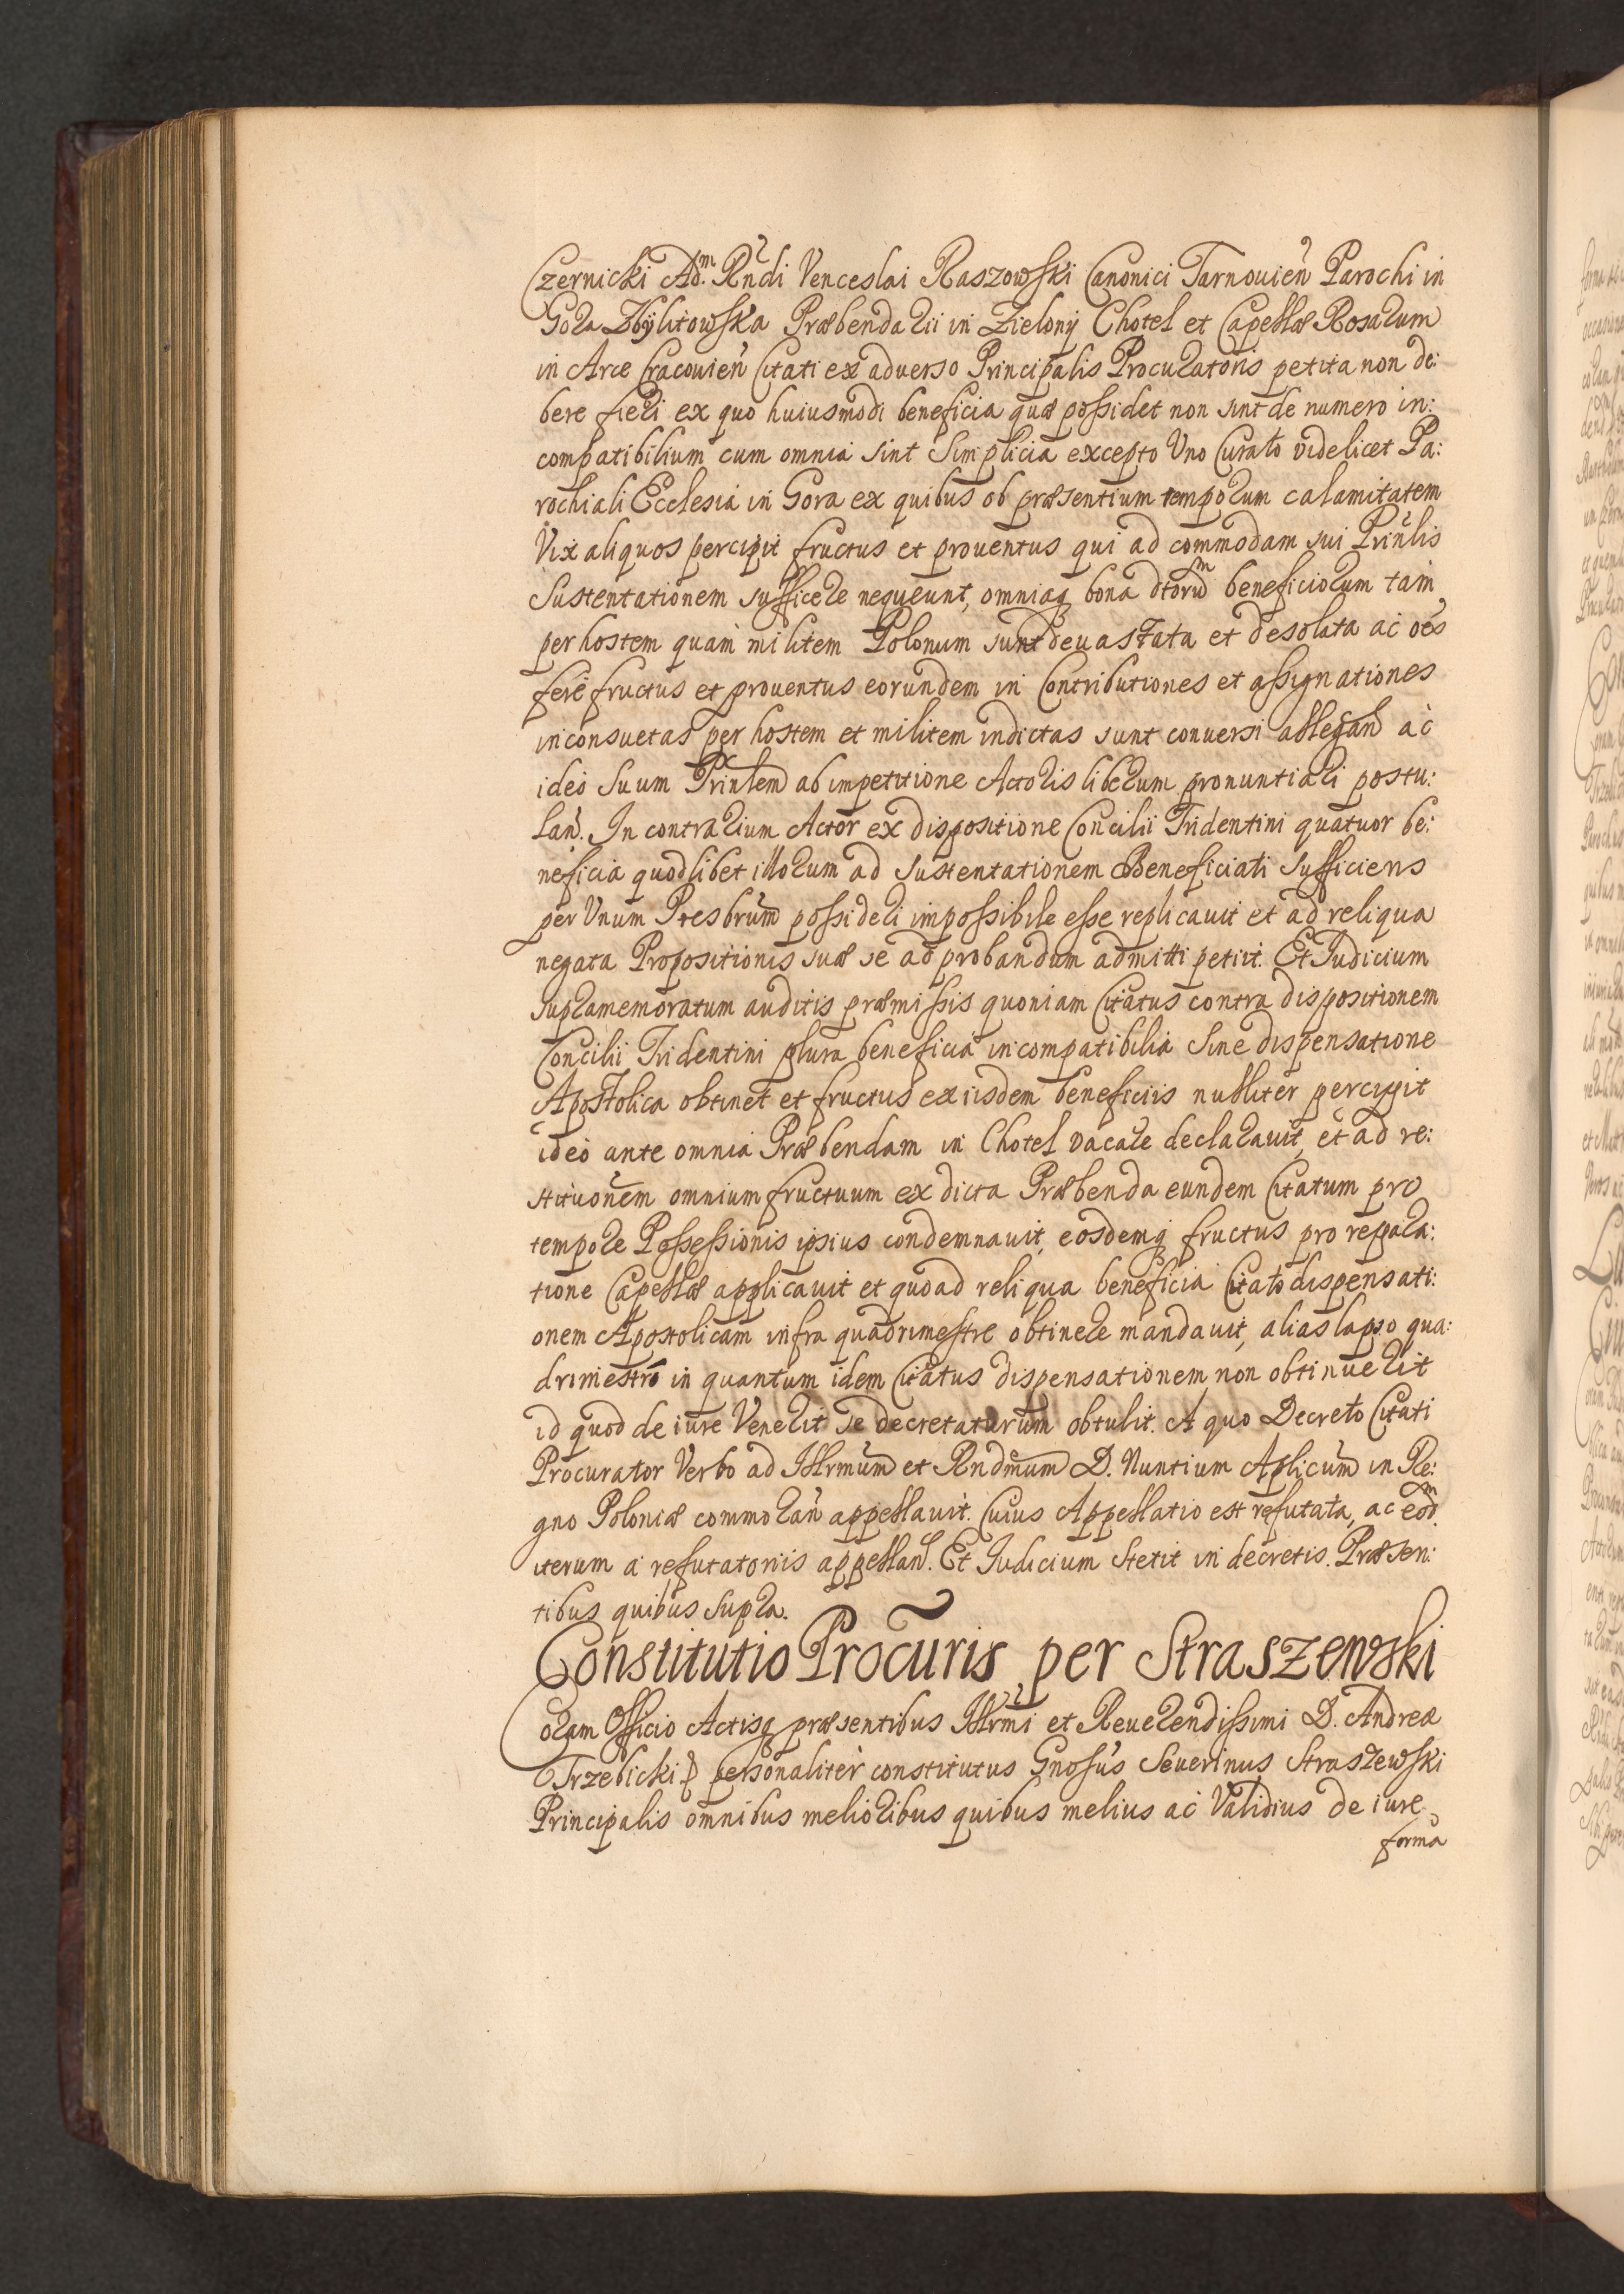 Czernicki Adm. Rndi Venceslai Raszowski Canonici Tarnouien Parochi in
Gora Zbylitowska Præbendarii in Zielony Chotel et Capellæ Rosarum
in Arce Cracouien Citati ex aduerso Principalis Procuratoris petita non de:
bere fieri ex quo huiusmodi beneficia quæ possidet non sint de numero in:
compatibilium cum omnia sint Simplicia excepto Uno Curato videlicet Pa:
rochiali Ecclesiâ in Gora ex quibus ob præsentium temporum calamitatem
Vix aliquos percipit fructus et prouentus qui ad commodam sui Prinlis
Sustentationem sufficere nequeunt, omniaq bona dtorum beneficiorum tam
per hostem quàm militem Polonum sunt deuastata et desolata ac oes
ferè fructus et prouentus eorundem in Contributiones et assignationes
inconsuetas per hostem et militem indictas sunt conuersi allegan ac
ideò Suum Prinlem ab impetitione Actoris liberum pronuntiari postu:
lan. In contrarium Actor ex dispositione Concilii Tridentini quatuor be:
neficia quodlibet illorum ad sustentationem Beneficiati sufficiens
per Unum Presbrum possideri impossibile esse replicauit et ad reliqua
negata Propositionis suæ se ad probandum admitti petiit. Et Iudicium
supramemoratum auditis præmissis quoniam Citatus contra dispositionem
Concilii Tridentini plura beneficia incompatibilia Sine dispensatione
Apostolica obtinet et fructus ex iisdem beneficiis nulliter percipit
ideò ante omnia Præbendam in Chotel vacare declarauit, et ad re:
stitutionem omnium fructuum ex dicta Præbenda eundem Citatum pro
tempore Possessionis ipsius condemnauit, eosdemq fructus pro repara:
tione Capellæ applicauit et quoad reliqua beneficia Citato dispensati:
onem Apostolicam infra quadrimestre obtinere mandauit, alias lapso qua:
drimestri in quantum idem Citatus dispensationem non obtinuerit
id quod de iure Venerit se decretaturum obtulit. A quo Decreto Citati
Procurator Verbo ad Illrmum et Rndmum D. Nuntium Aplicum in Re:
gno Poloniæ commoran appellauit. Cuius Appellatio est refutata, ac eodm
iterum à refutatoriis appellan. Et Iudicium Stetit in decretis. Præsen:
tibus quibus supra.
Constitutio Procuris per Straszewski
Coram Officio Actisq præsentibus Illrmi et Reuerendissimi D. Andreæ
Trzebicki personaliter constitutus Gnosus Seuerinus Straszewski
Principalis omnibus melioribus quibus melius ac Validius de iure
forma